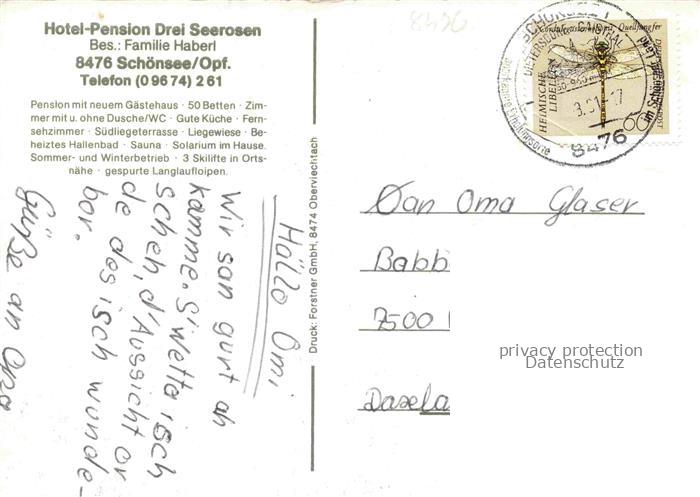 Hotel-Pension Drei Seerosen
Bes.: Familie Haberl
8476 Schönsee/Opf.
Telefon (0 96 74) 2 61
Pension mit neuem Gästehaus · 50 Betten · Zim-
mer mit u. ohne Dusche/WC · Gute Küche · Fern-
sehzimmer · Südliegeterrasse · Liegewiese · Be-
heiztes Hallenbad · Sauna · Solarium im Hause.
Sommer- und Winterbetrieb · 3 Skilifte in Orts-
nähe · gespurte Langlaufloipen.
Hallo Omi
Wir san gurt ah
kamme. S'Wetta isch
scheh, d'Aussicht or
de dos isch wunde-
bor.
Grüße an Opa
Druck: Forstner GmbH, 8474 Oberviechtach
8476
SCHÖNSEE 1
8476
im Schönseer Land
HEIMISCHE
LIBELLEN
Quelljungfer
DEUTSCHE BUNDESPOST
60
Øan Oma Glaser
Babb
7500
Daxela
privacy protection
Datenschutz